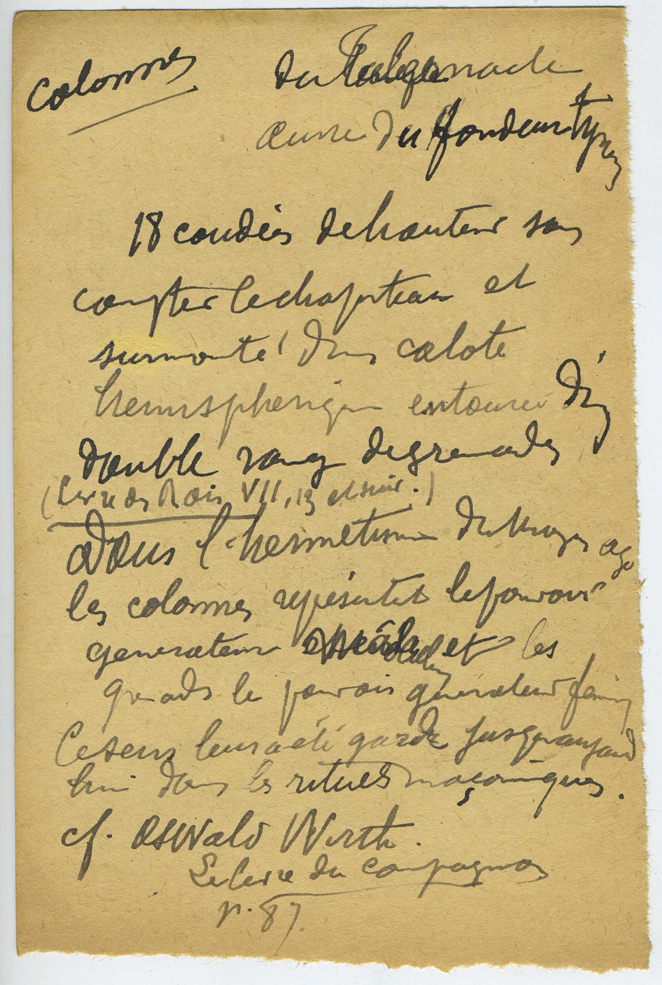 Colonnes
du Tabernacle
œuvre du fondeur Tyrien
18 coudées de hauteur sans
compter le chapiteau et
surmonté d'une calote
hemispherique entourée d'un
double rang de grenades
(Livre des Rois VII, 13 et suiv.)
Dans l'hermetisme du moyen age
les colonnes représentent le pouvoir
generateur et les
le pouvoir générateur féminin
Ce sens leur a été gardé jusqu'aujourd
hui dans les rituels maçonniques.
cf. Oswald Wirth.
Le livre du Compagnon
p. 87.